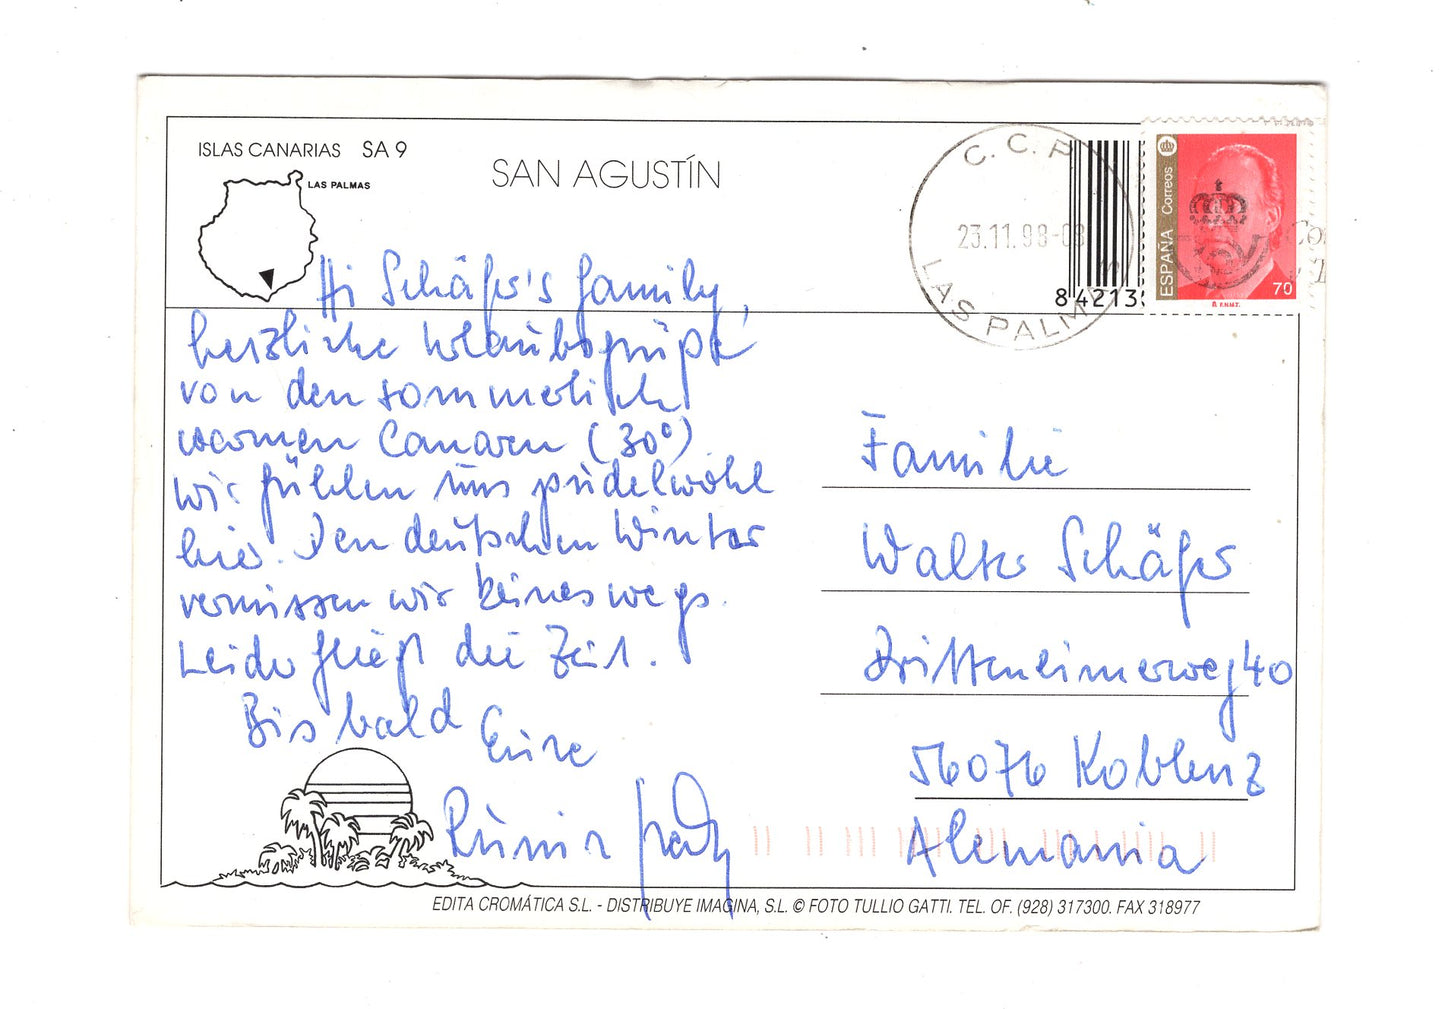 ISLAS CANARIAS SA 9
LAS PALMAS
SAN AGUSTÍN
C. C. P
23.11.98-08
LAS PALMAS
84213
ESPAÑA Correos
70
F.N.M.T.
Hi Schäfer's family,
herzliche Urlaubsgrüße
von den sommerlich
warmen Canaren (30°)
wir fühlen uns pudelwohl
hier. Den deutschen Winter
vermissen wir keineswegs.
Leider fliegt die Zeit.
Bis bald
Eure
Familie
Walter Schäfer
40
56076 Koblenz
Alemania
EDITA CROMÁTICA S.L. - DISTRIBUYE IMAGINA, S.L. © FOTO TULLIO GATTI. TEL. OF. (928) 317300. FAX 318977